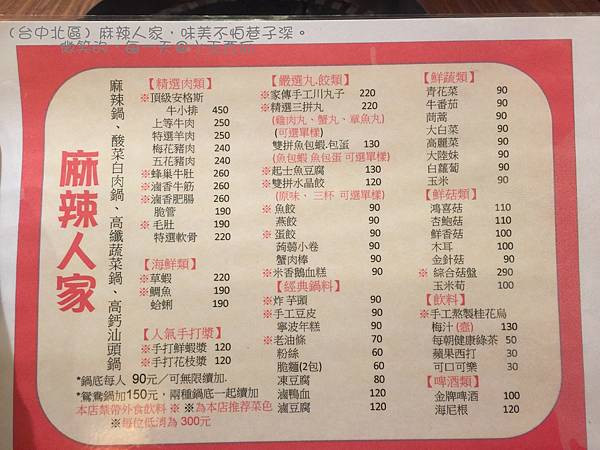 （台中北區）麻辣人家，味美不怕巷子深。
麻辣人家
麻辣鍋、酸菜白肉鍋、高纖蔬菜鍋、高鈣汕頭鍋
【精選肉類】
※頂級安格斯
牛小排 450
上等牛肉 250
特選羊肉 250
梅花豬肉 240
五花豬肉 240
※蜂巢牛肚 260
※滷香牛筋 260
※滷香肥腸 260
脆管 190
※毛肚 190
特選軟骨 220
【海鮮類】
※草蝦 220
※鯛魚 190
蛤蜊 190
【人氣手打漿】
※手打鮮蝦漿 120
※手打花枝漿 120
*鍋底每人 90元／可無限續加.
*鴛鴦鍋加150元，兩種鍋底一起續加
本店禁帶外食飲料 ※ ※為本店推荐菜色
※每位低消為 300元
【嚴選丸.餃類】
※家傳手工川丸子 220
※精選三拼丸 220
(雞肉丸、蟹丸、章魚丸)
(可選單樣)
雙拼魚包蝦.包蛋 130
(魚包蝦 魚包蛋 可選單樣)
※起士魚豆腐 130
※雙拼水晶餃 120
(原味、三杯 可選單樣)
※魚餃 90
燕餃 90
※蛋餃 90
蒟蒻小卷 90
蟹肉棒 90
※米香鵝血糕 90
【經典鍋料】
※炸芋頭 90
※手工豆皮 90
寧波年糕 90
※老油條 70
粉絲 60
脆麵(2包) 60
凍豆腐 80
滷鴨血 120
滷豆腐 120
【鮮蔬類】
青花菜 90
牛番茄 90
茼蒿 90
大白菜 90
高麗菜 90
大陸妹 90
白蘿蔔 90
玉米 90
【鮮菇類】
鴻喜菇 110
杏鮑菇 110
鮮香菇 100
木耳 90
金針菇 90
※ 綜合菇盤 290
玉米筍 100
【飲料】
※手工熬製桂花烏
梅汁(壺) 130
每朝健康綠茶 50
蘋果西打 30
可口可樂 30
【啤酒類】
金牌啤酒 100
海尼根 120